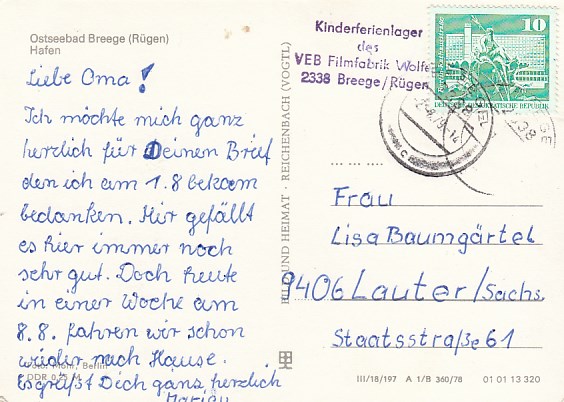 Ostseebad Breege (Rügen)
Hafen
Liebe Oma!
Ich möchte mich ganz
herzlich für Deinen Brief
den ich am 1.8 bekam
bedanken. Mir gefällt
es hier immer noch
sehr gut. Doch heute
in einer Woche am
8.8. fahren wir schon
wieder nach Hause.
Es grüßt Dich ganz herzlich
Foto: Mohr, Berlin
DDR 0,25 M
BILD UND HEIMAT · REICHENBACH (VOGTL)
Kinderferienlager
des
VEB Filmfabrik Wolfen
2338 Breege/Rügen
10
DEUTSCHE DEMOKRATISCHE REPUBLIK
Frau
Lisa Baumgärtel
9406 Lauter/Sachs.
Staatsstraße 61
III/18/197 A 1/B 360/78 01 01 13 320